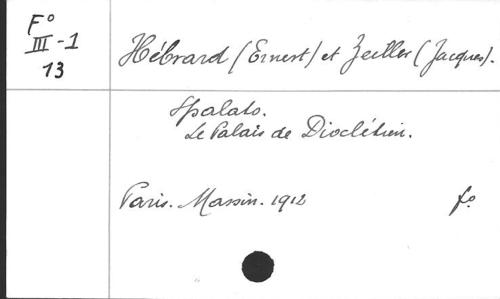 F°
III-1
13
Hébrard (Ernest) et Zeiller (Jacques).
Spalato.
Le Palais de Dioclétien.
Paris. Massin. 1912 f°.